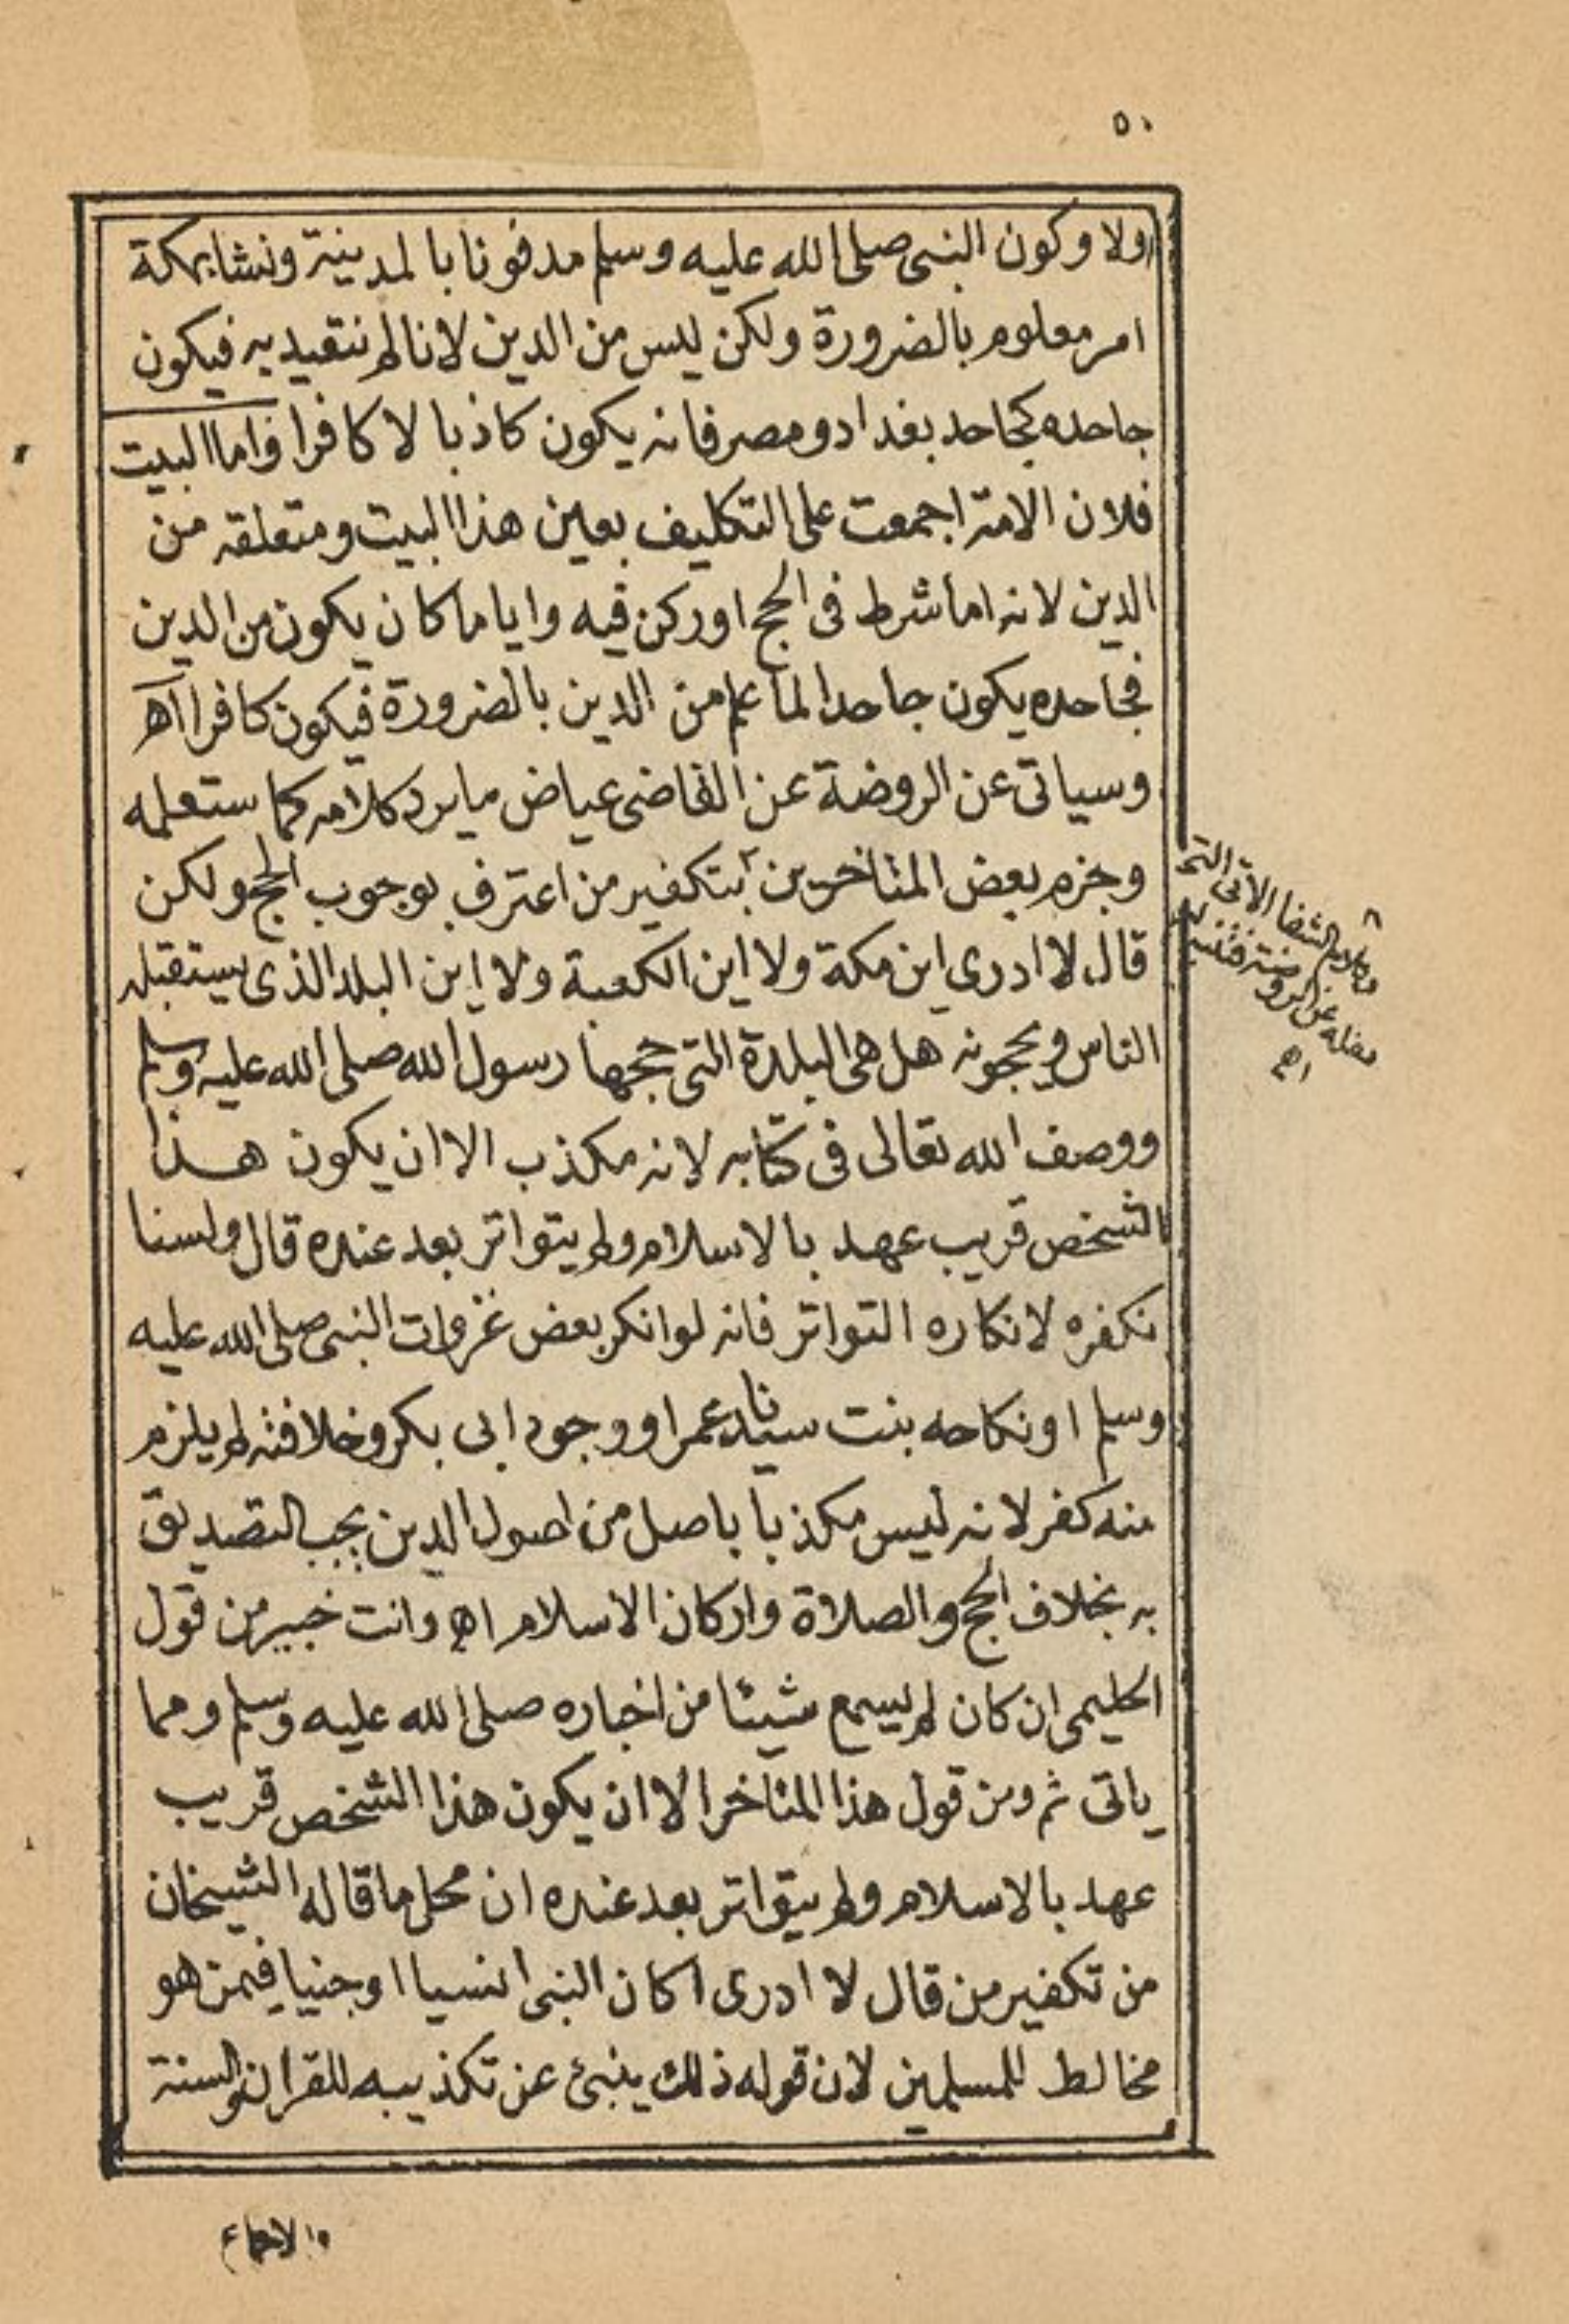 ٥٠
اولا وكون النبى صلى الله عليه وسلم مدفونا بالمدينة ونشا بمكة
امر معلوم بالضرورة ولكن ليس من الدين لانا لم نتقيد به فيكون
جاحده كجاحد بغداد ومصر فانه يكون كاذبا لا كافرا واما البيت
فلان الامة اجمعت على التكليف بعين هذا البيت ومتعلقه من
الدين لانه اما شرط فى الحج او ركن فيه وايا ما كان يكون من الدين
فجاحده يكون جاحدا لما علم من الدين بالضرورة فيكون كافرا اه
وسياتى عن الروضة عن القاضى عياض ما يرد كلامه كما ستعلمه
وجزم بعض المتاخرين بتكفير من اعترف بوجوب الحج ولكن
قال لا ادري اين مكة ولا اين الكعبة ولا اين البلد الذى يستقبله
الناس ويحجونه هل هى البلدة التى حجها رسول الله صلى الله عليه وسلم
ووصف الله تعالى فى كتابه لانه مكذب الا ان يكون هذا
الشخص قريب عهد بالاسلام ولم يتواتر بعد عنده قال ولسنا
نكفره لانكاره التواتر فانه لو انكر بعض غزوات النبى صلى الله عليه
وسلم او نكاحه بنت سيدنا عمر او وجود ابى بكر وخلافته لم يلزم
منه كفر لانه ليس مكذبا باصل من اصول الدين يجب التصديق
به بخلاف الحج والصلاة واركان الاسلام اه وانت خبير من قول
الحليمى ان كان لم يسمع شيئا من اخباره صلى الله عليه وسلم ومما
ياتى ثم ومن قول هذا المتاخر الا ان يكون هذا الشخص قريب
عهد بالاسلام ولم يتواتر بعد عنده ان محل ما قاله الشيخان
من تكفير من قال لا ادرى اكان النبى انسيا او جنيا فيمن هو
مخالط للمسلمين لان قوله ذلك ينبئ عن تكذيبه للقران والسنة
الشفا الاتى
عن الروضة
اه
والاجماع